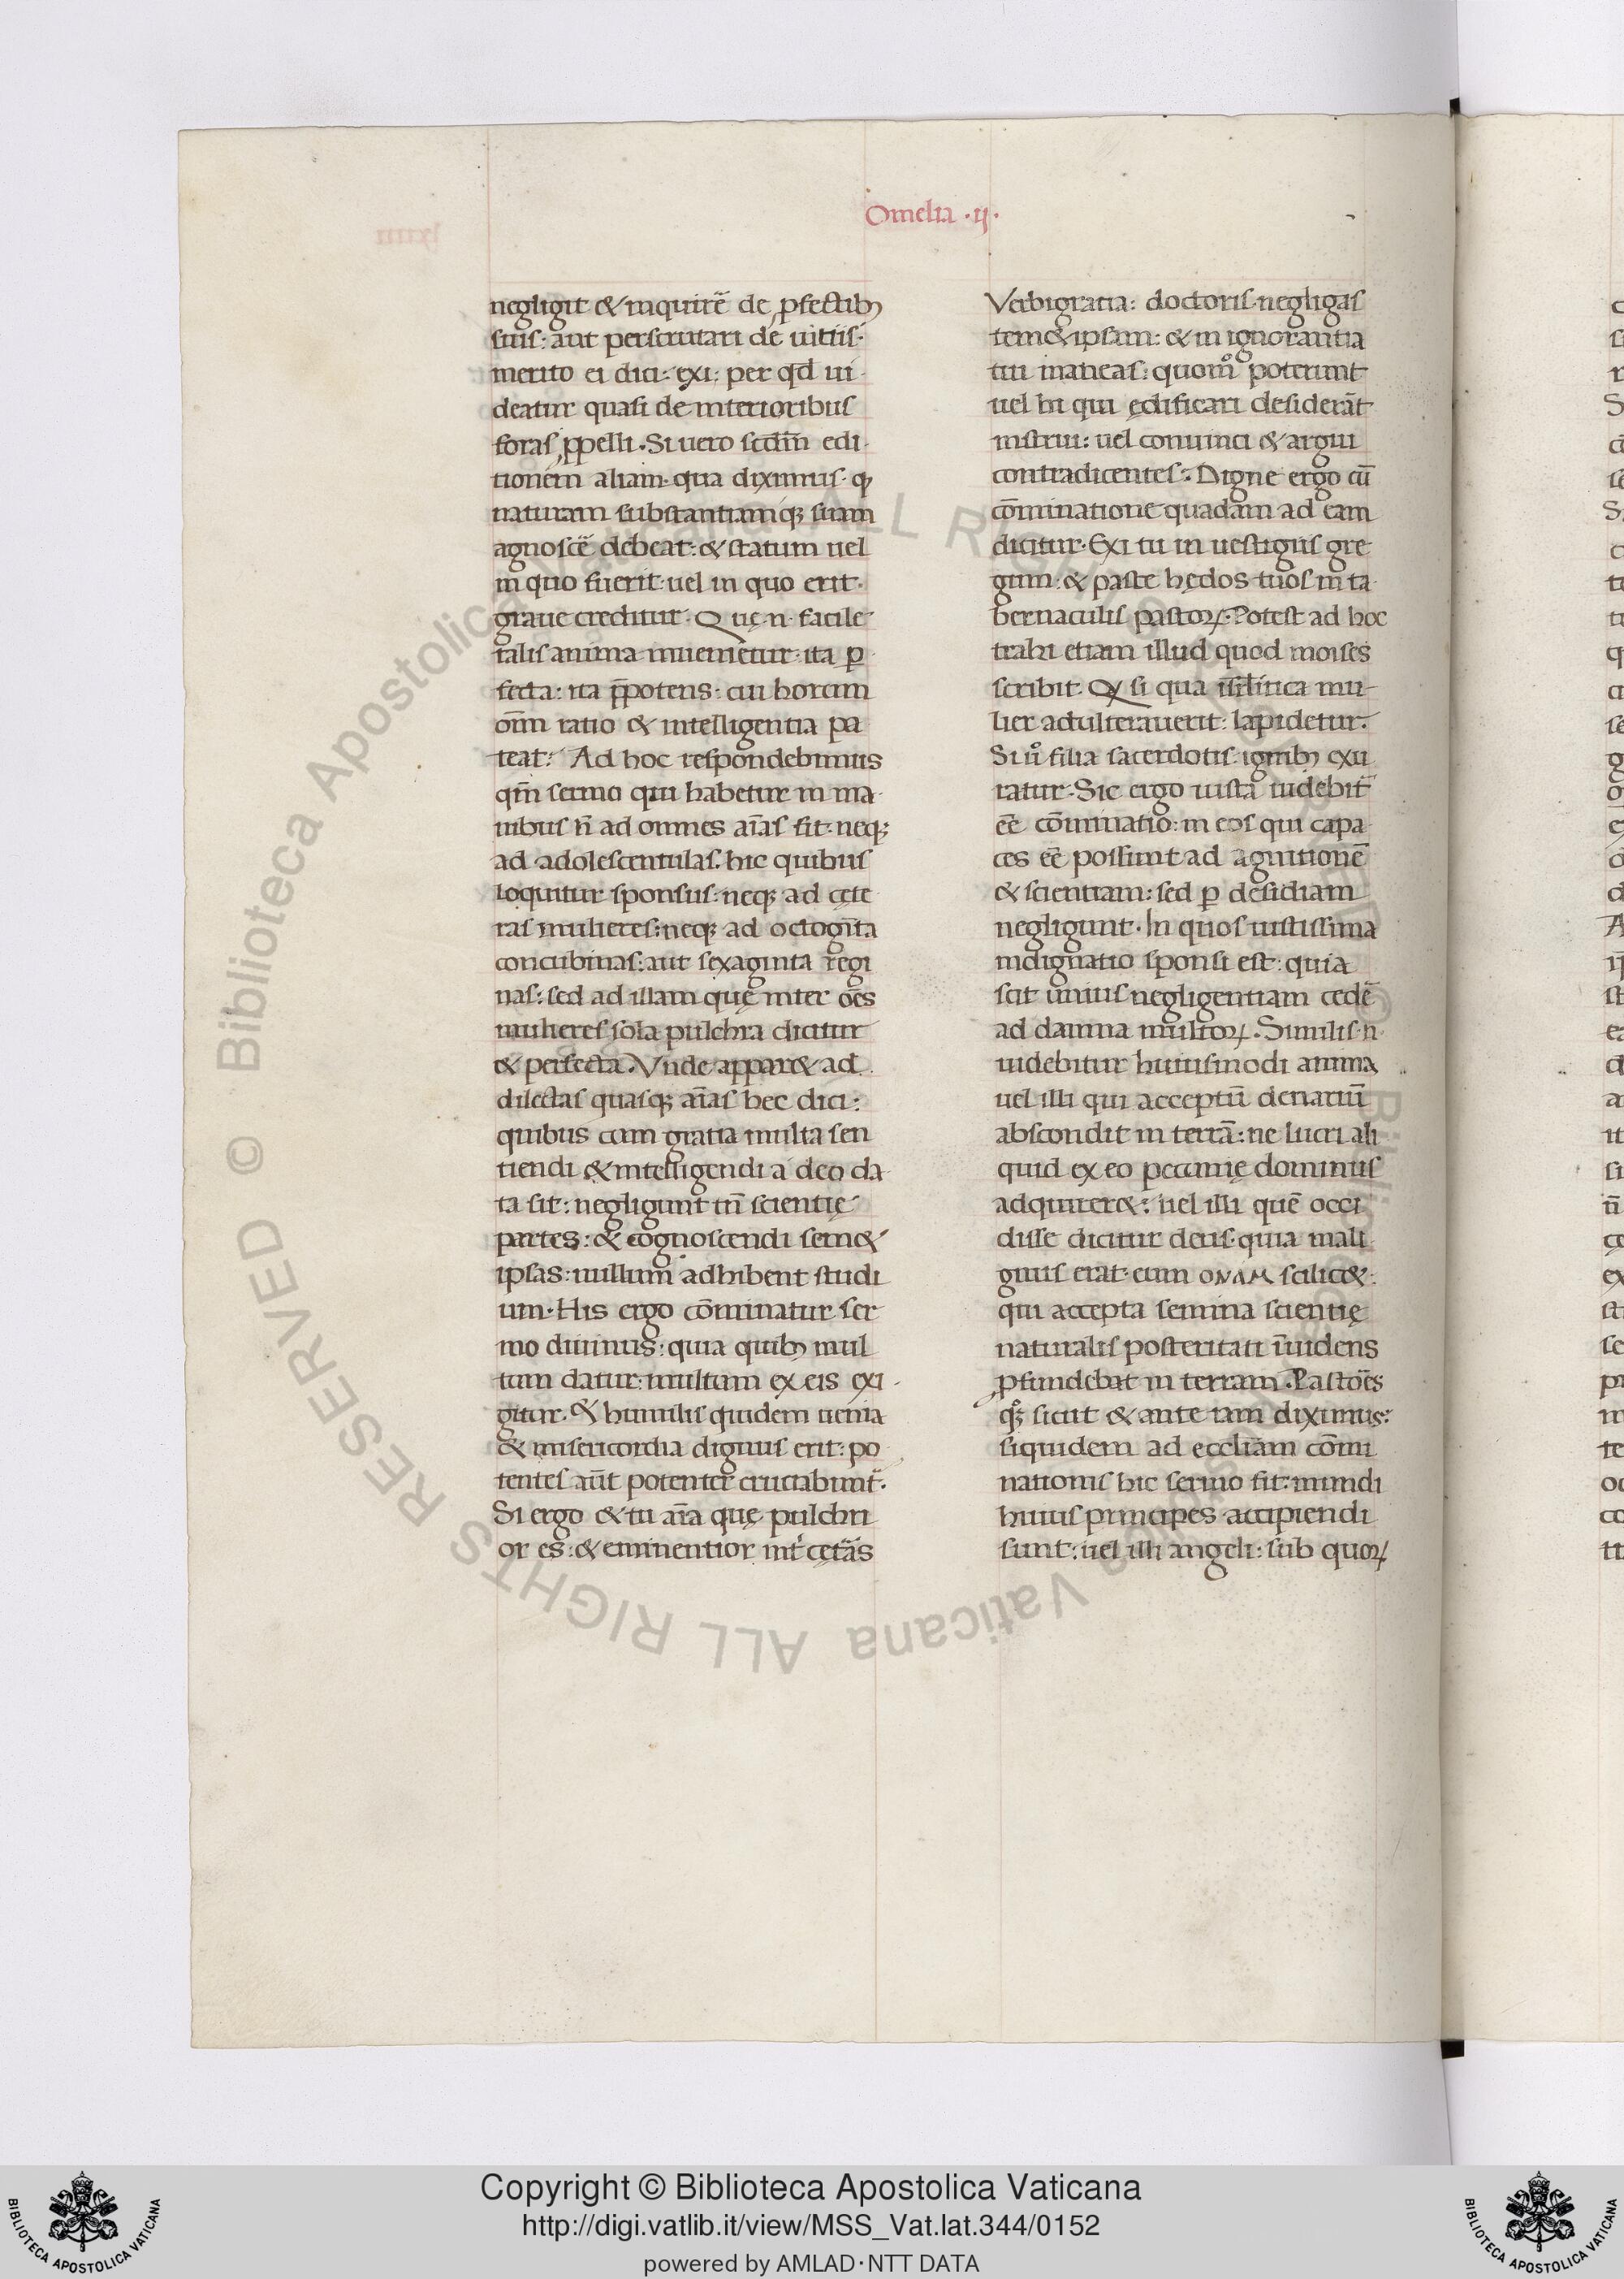 Omelia .ij.
negligit & inquirē de ꝓfectibꝫ
suis: aut perscrutari de uitiis.
merito ei dici: exi: per qđ ui
deatur quasi de interioribus
foras ꝓpelli. Si uero scđm edi
tionem aliam. qua diximus. qꝫ
naturam substantiamqꝫ suam
agnoscē debeat: & statum uel
in quo fuerit. uel in quo erit.
graue creditur. Quę.n. facile
talis anima inuenietur. ita ꝑ
fecta: ita p̄potens: cui horum
om̄ ratio & intelligentia pa
teat: Ad hoc respondebimus
qm̄ sermo qui habetur in ma
nibus n̄ ad omnes aīas fit. neqꝫ
ad adolescentulas. hic quibus
loquitur sponsus: neqꝫ ad cęte
ras mulieres: neqꝫ ad octogīta
concubinas: aut sexaginta regi
nas: sed ad illam quę inter oēs
mulieres sola pulchra dicitur
& perfecta. Vnde appar& ad
dilectas quasqꝫ aīas hec dici:
quibus cum gratia multa sen
tiendi & intelligendi a deo da
ta sit: negligunt tn̄ scientię
partes: & cognoscendi sem&
ipsas: nullum adhibent studi
um. His ergo cōminatur ser
mo diuinus: quia quibꝫ mul
tum datur: multum ex eis exi
gitur. & humilis quidem uenia
& misericordia dignus erit: po
tentes aūt potenter cruciabunt̄.
Si ergo & tu aīa quę pulchri
or es: & eminentior int̄ cęt̄as
Verbigratia: doctoris. negligas
tem&ipsam: & in ignorantia
tui maneas: quomº poterunt
uel hi qui ędificari desiderāt
instrui: uel conuinci & argui
contradicentes: Digne ergo cū
cōminatione quadam ad eam
dicitur. Exi tu in uestigiis gre
gum: & pasce hędos tuos in ta
bernaculis pastoꝝ. Potest ad hoc
trahi etiam illud quod moises
scribit. Q si qua isr̄litica mu-
lier adulterauerit: lapidetur.
Si uº filia sacerdotis. ignibꝫ exu
ratur. Sic ergo iusta uidebit̄
eē cōminatio: in eos qui capa
ces eē possunt ad agnitionē
& scientiam: sed ꝑ desidiam
negligunt. In quos iustissima
indignatio sponsi est: quia
scit unius negligentiam cedē
ad damna multoꝝ. Similis.n.
uidebitur huiusmodi anima
uel illi qui acceptū denariū
abscondit in terrā: ne lucri ali
quid ex eo pecunię dominus
adquirer&: uel illi quē occi
disse dicitur deus: quia mali
gnus erat. eum ONAM scilic&:
qui accepta semina scientię
naturalis posteritati īuidens
ꝓfundebat in terram. Pastoēs
qꝫº sicut & ante iam diximus:
siquidem ad eccliam cōmi
nationis hic sermo fit: mundi
huius principes accipiendi
sunt: uel illi angeli: sub quoꝝ
Copyright © Biblioteca Apostolica Vaticana
http://digi.vatlib.it/view/MSS_Vat.lat.344/0152
powered by AMLAD·NTT DATA